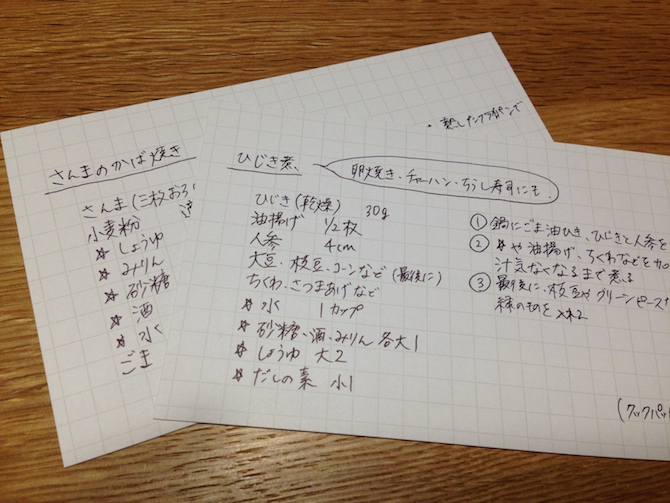 さんまのかば焼き
さんま(三枚おろ
小麦粉
☆ しょうゆ
☆ みりん
☆ 砂糖
☆ 酒
☆ 水
ごま
・熱したフライパンで
ひじき煮
卵焼き、チャーハン、ちらし寿司にも
ひじき(乾燥) 30g
油揚げ 1/2枚
人参 4cm
大豆、枝豆、コーンなど(最後に)
ちくわ、さつまあげなど
☆ 水 1カップ
☆ 砂糖、酒、みりん 各大1
☆ しょうゆ 大2
☆ だしの素 小1
① 鍋にごま油ひき、ひじきと人参を
② ☆や油揚げ、ちくわなどを加
汁気なくなるまで煮る
③ 最後に、枝豆やグリーンピース
緑のものを入れる
(クックパッ